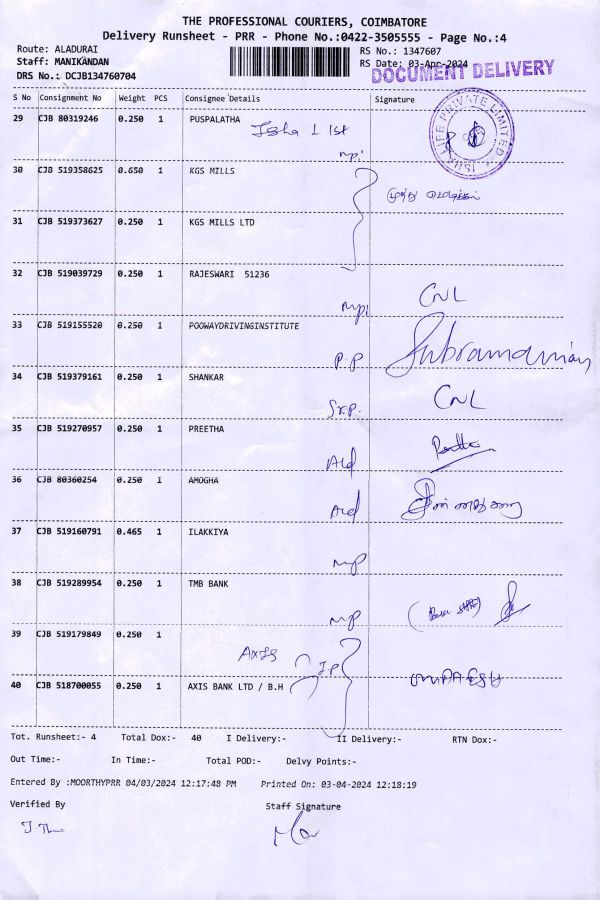 THE PROFESSIONAL COURIERS, COIMBATORE
Delivery Runsheet - PRR - Phone No.:0422-3505555 - Page No.:4
Route: ALADURAI RS No.: 1347607
Staff: MANIKANDAN RS Date: 03-Apr-2024
DRS No.: DCJB134760704 DOCUMENT DELIVERY
S No Consignment No Weight PCS Consignee Details Signature
29 CJB 80319246 0.250 1 PUSPALATHA
Isha L 1st
ISHA LIFE PRIVATE LIMITED
30 CJB 519358625 0.650 1 KGS MILLS
31 CJB 519373627 0.250 1 KGS MILLS LTD
32 CJB 519039729 0.250 1 RAJESWARI 51236
CNL
33 CJB 519155520 0.250 1 POOWAYDRIVINGINSTITUTE
P.P Subramanian
34 CJB 519379161 0.250 1 SHANKAR
CNL
35 CJB 519270957 0.250 1 PREETHA
Ald
36 CJB 80360254 0.250 1 AMOGHA
Ald
37 CJB 519160791 0.465 1 ILAKKIYA
MP
38 CJB 519289954 0.250 1 TMB BANK
MP
39 CJB 519179849 0.250 1
AXIS
40 CJB 518700055 0.250 1 AXIS BANK LTD / B.H
Tot. Runsheet:- 4 Total Dox:- 40 I Delivery:- II Delivery:- RTN Dox:-
Out Time:- In Time:- Total POD:- Delvy Points:-
Entered By :MOORTHYPRR 04/03/2024 12:17:48 PM Printed On: 03-04-2024 12:18:19
Verified By Staff Signature